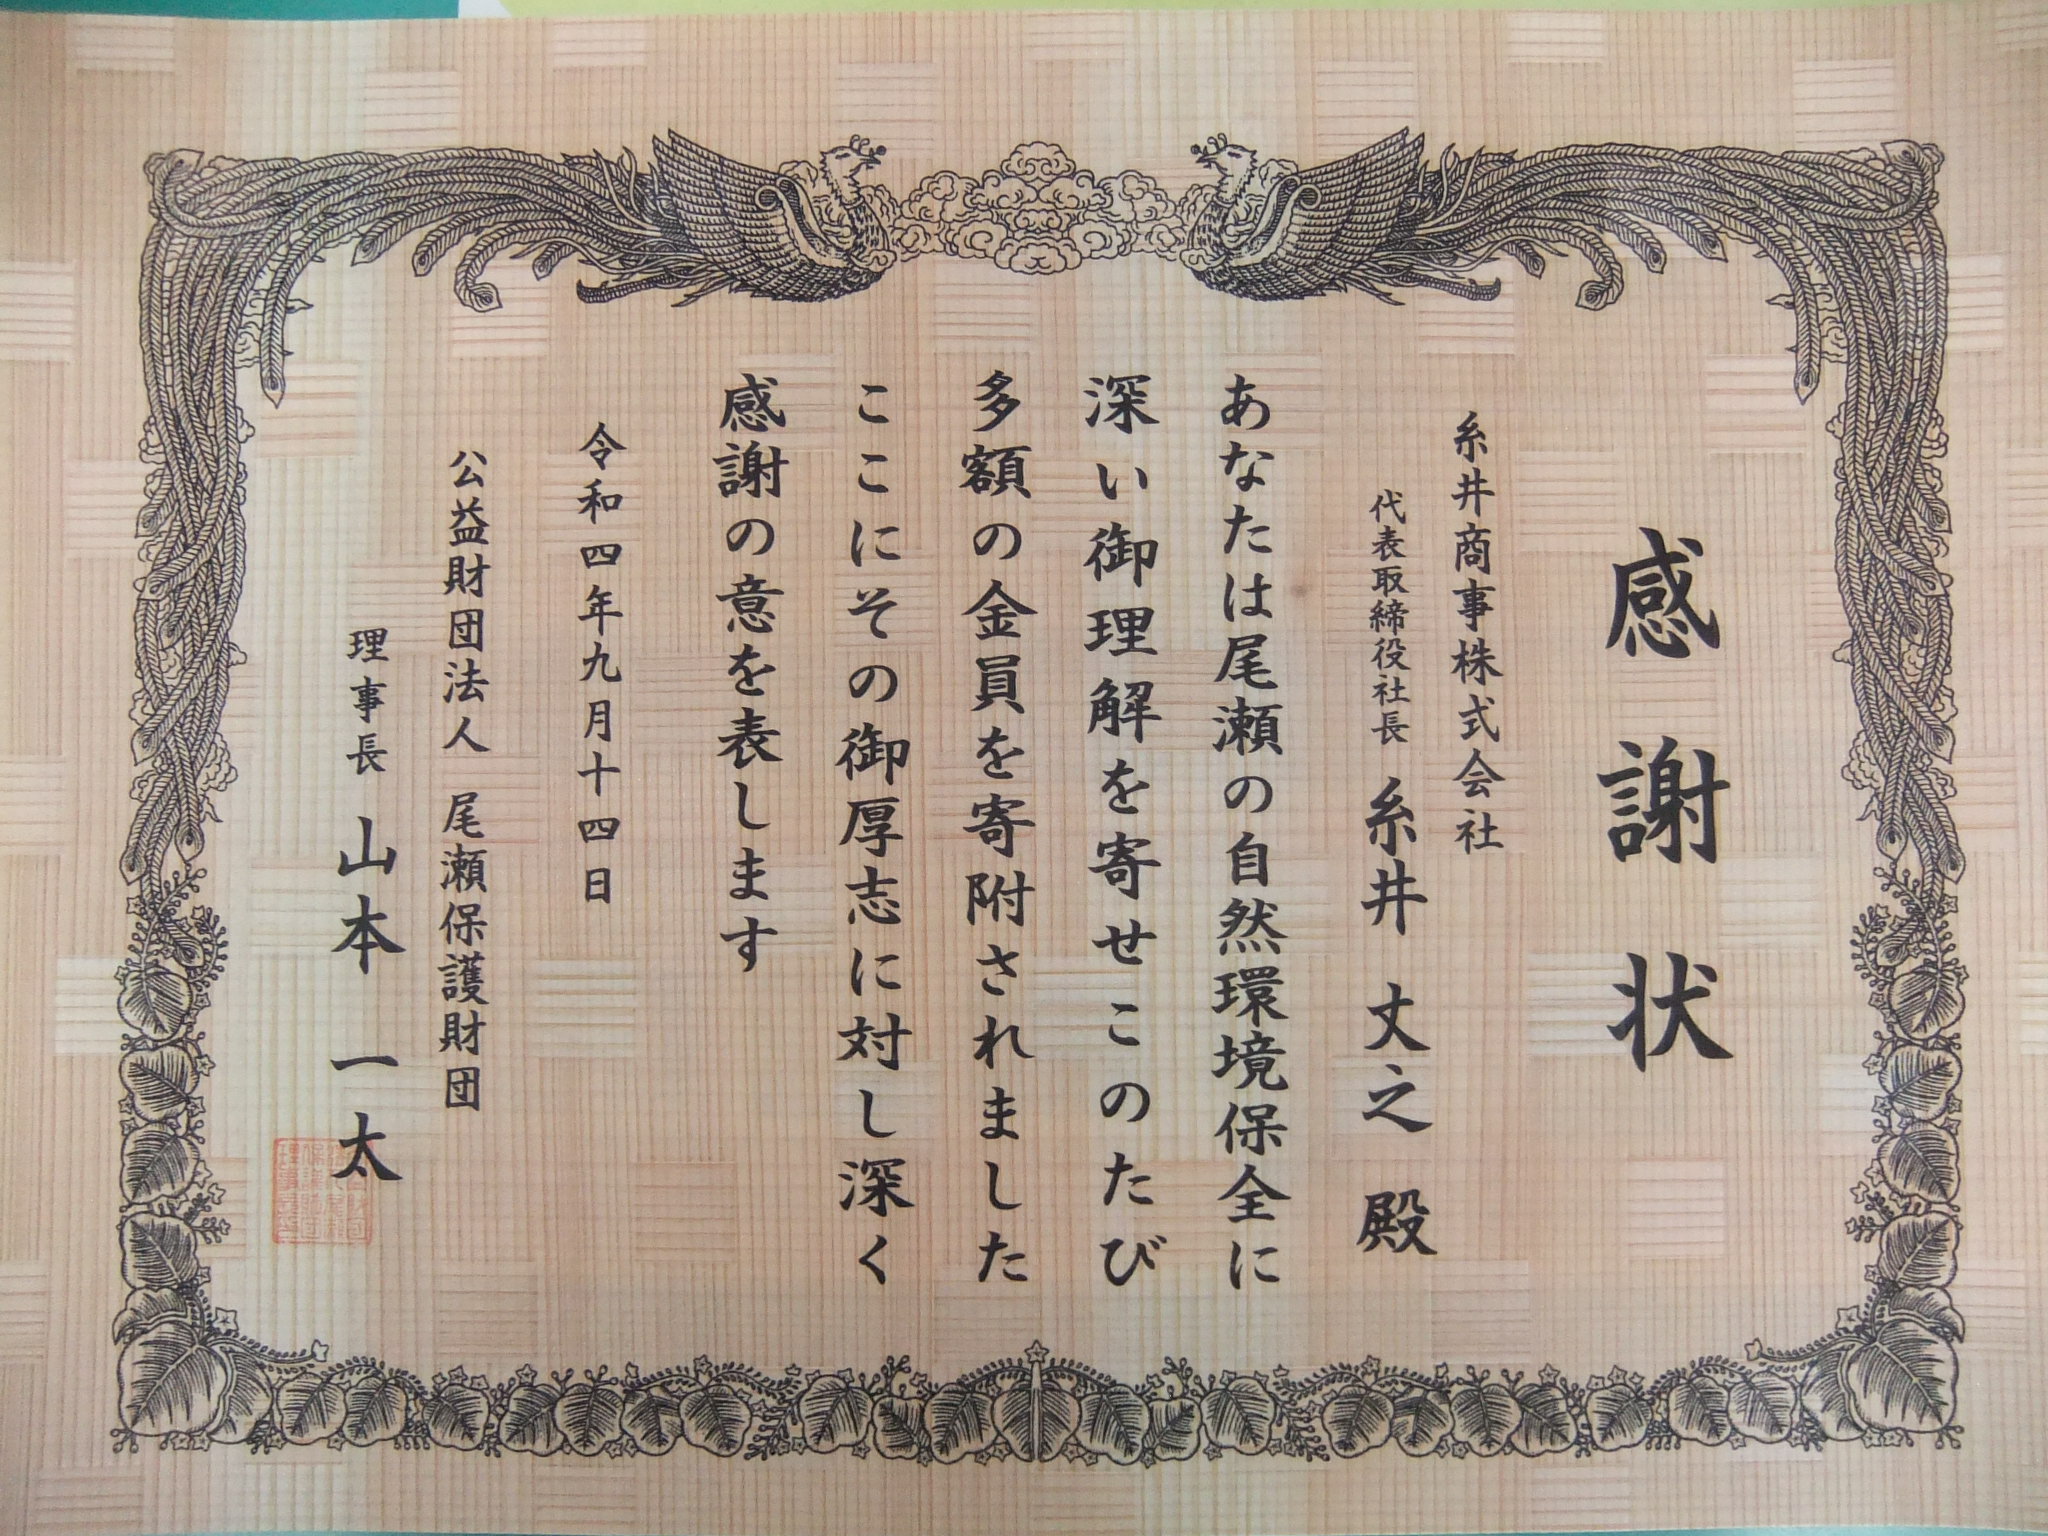 感謝状
糸井商事株式会社
代表取締役社長 糸井 丈之 殿
あなたは尾瀬の自然環境保全に
深い御理解を寄せこのたび
多額の金員を寄附されました
ここにその御厚志に対し深く
感謝の意を表します
令和四年九月十四日
公益財団法人 尾瀬保護財団
理事長 山本 一太